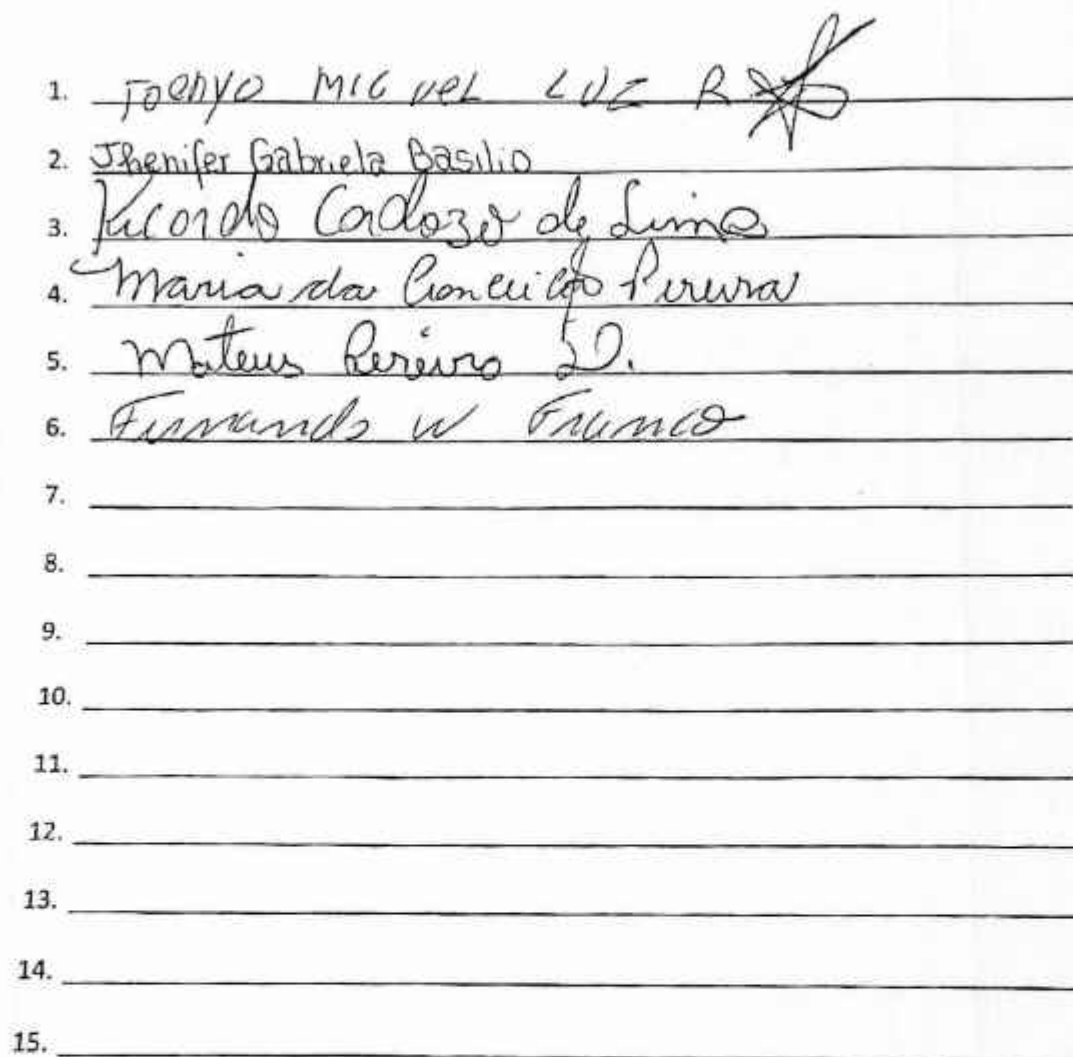 1. MIGUEL LUZ R
2. Jhenifer Gabriela Basilio
3. Ricardo Cardozo de Lima
4. Maria da Conceição Pereira
5. Mateus Pereira D.
6. Fernando W Franco
7.
8.
9.
10.
11.
12.
13.
14.
15.